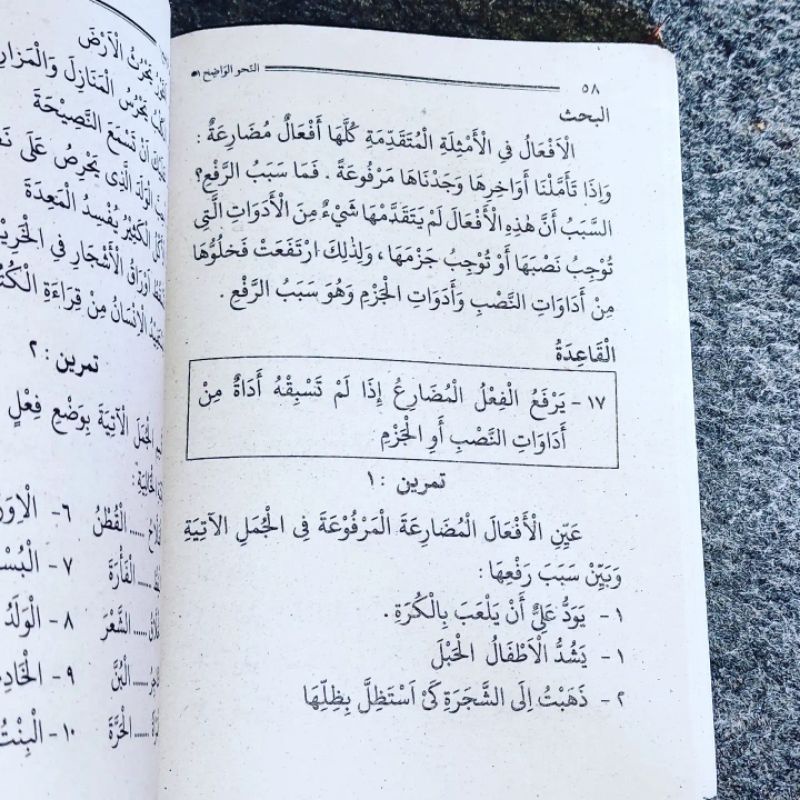 ٥٨
النحو الواضح ١
البحث
الْأَفْعَالُ فِي الْأَمْثِلَةِ الْمُتَقَدِّمَةِ كُلُّهَا أَفْعَالٌ مُضَارِعَةٌ :
وَإِذَا تَأَمَّلْنَا أَوَاخِرِهَا وَجَدْنَاهَا مَرْفُوعَةً . فَمَا سَبَبُ الرَّفْعِ؟
السَّبَبُ أَنَّ هٰذِهِ الْأَفْعَالَ لَمْ يَتَقَدَّمْهَا شَيْءٌ مِنَ الْأَدَوَاتِ الَّتِى
تُوْجِبُ نَصْبَهَا أَوْ تُوْجِبُ جَزْمَهَا ، وَلِذٰلِكَ ارْتَفَعَتْ فَخُلُوُّهَا
مِنْ أَدَاوَاتِ النَّصْبِ وَأَدَوَاتِ الْجَزْمِ وَهُوَ سَبَبُ الرَّفْعِ .
الْقَاعِدَةُ
١٧ - يَرْفَعُ الْفِعْلُ الْمُضَارِعُ إِذَا لَمْ تَسْبِقْهُ أَدَاةٌ مِنْ
أَدَاوَاتِ النَّصْبِ أَوِ الْجَزْمِ
تمرين : ١
عَيِّنِ الْأَفْعَالَ الْمُضَارِعَةَ الْمَرْفُوْعَةَ فِى الْجُمَلِ الآتِيَةِ
وَبَيِّنْ سَبَبَ رَفْعِهَا :
١ - يَوَدُّ عَلِيٌّ أَنْ يَلْعَبَ بِالْكُرَةِ .
١ - يَشُدُّ الْأَطْفَالُ الْحَبْلَ
٢ - ذَهَبْتُ إِلَى الشَّجَرَةِ كَىْ اَسْتَظِلَّ بِظِلِّهَا
يَحْرُثُ الْأَرْضَ
يَحْرُسُ الْمَنَازِلَ
أَنْ تَسْمَعَ النَّصِيْحَةَ
الْوَلَدَ الَّذِى يَحْرِصُ عَلَى
الْكَثِيْرُ يُفْسِدُ الْمَعِدَةَ
أَوْرَاقُ الْأَشْجَارِ فِي
الْإِنْسَانُ مِنْ قِرَاءَةِ
تمرين : ٢
الْجُمَلَ الْآتِيَةَ بِوَضْعِ فِعْلٍ
الْخَالِيَةِ :
..... الْقُطْنُ ٦ -
..... الْفَأْرَةَ ٧ -
..... الشَّعْرَ ٨ - الْوَلَدُ
..... الْبُنَّ ٩ -
..... الْجَرَّةَ ١٠ - الْبِنْتُ